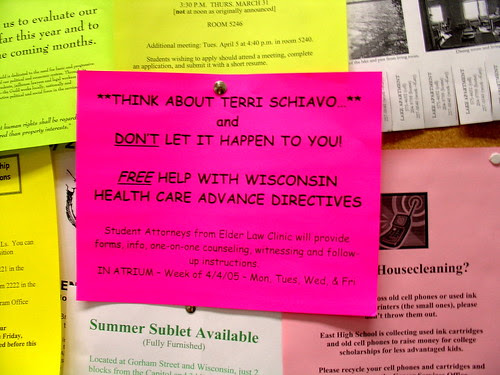 us to evaluate our
far this year and to
e coming months.
human rights shall be regard
ed than property interests."
3:30 P.M. THURS. MARCH 31
[not at noon as originally announced]
ROOM 5246
Additional meeting: Tues. April 5 at 4:40 p.m. in room 5240.
Students wishing to apply should attend a meeting, complete
an application, and submit it with a short resume.
**THINK ABOUT TERRI SCHIAVO...**
and
DON'T LET IT HAPPEN TO YOU!
FREE HELP WITH WISCONSIN
HEALTH CARE ADVANCE DIRECTIVES
Student Attorneys from Elder Law Clinic will provide
forms, info, one-on-one counseling, witnessing and follow-
up instructions.
IN ATRIUM – Week of 4/4/05 – Mon, Tues, Wed, & Fri
LAKE APARTMENT
LAKE APARTMENT
LAKE APARTMENT
LAKE APARTMENT
ship
ions
Ls. You can
ition
221 in the
m 2222 in the
gram Office
Friday,
ed before this
Summer Sublet Available
(Fully Furnished)
Located at Gorham Street and Wisconsin, just 2
blocks from the Capitol and
Housecleaning?
oss old cell phones or used ink
rinters (the small ones), please
n't throw them out.
East High School is collecting used ink cartridges
and old cell phones to raise money for college
scholarships for less advantaged kids.
Please recycle your cell phones and cartridges and